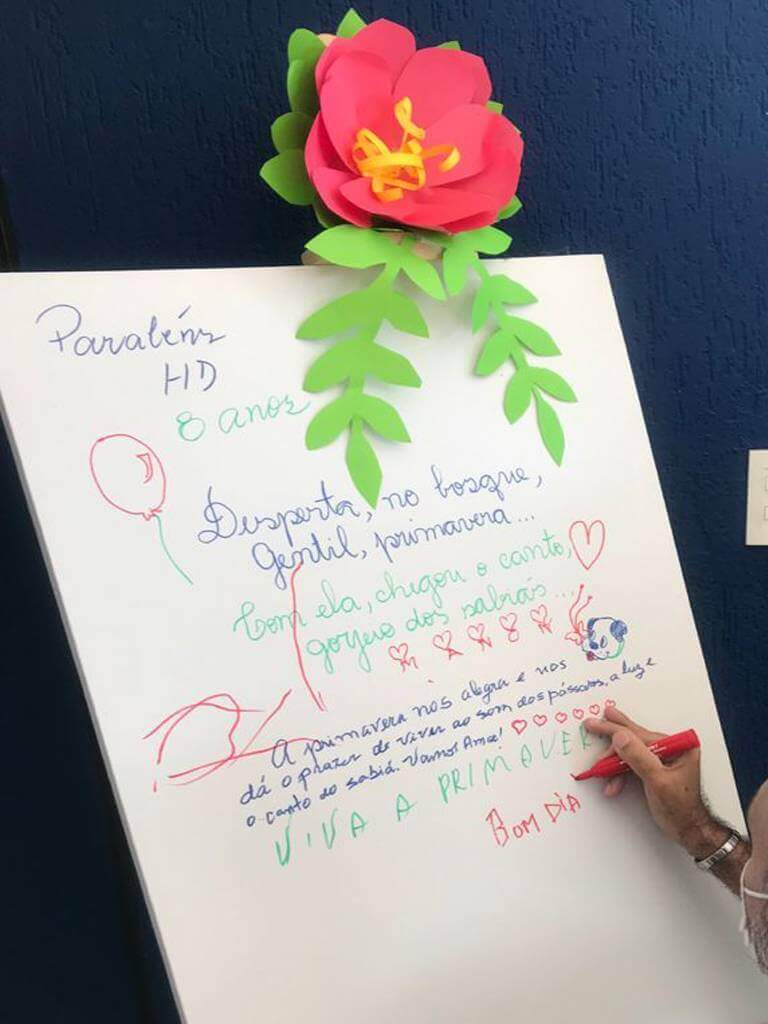 Parabéns
HD
8 anos
Desperta, no bosque,
Gentil, primavera...
Com ela, chegou o canto,
gorjeio dos sabiás...
A primavera nos alegra e nos
dá o prazer de viver ao som dos pássaros, a luz e
o canto do sabiá. Vamos Amar!
VIVA A PRIMAVER
BOM DIA